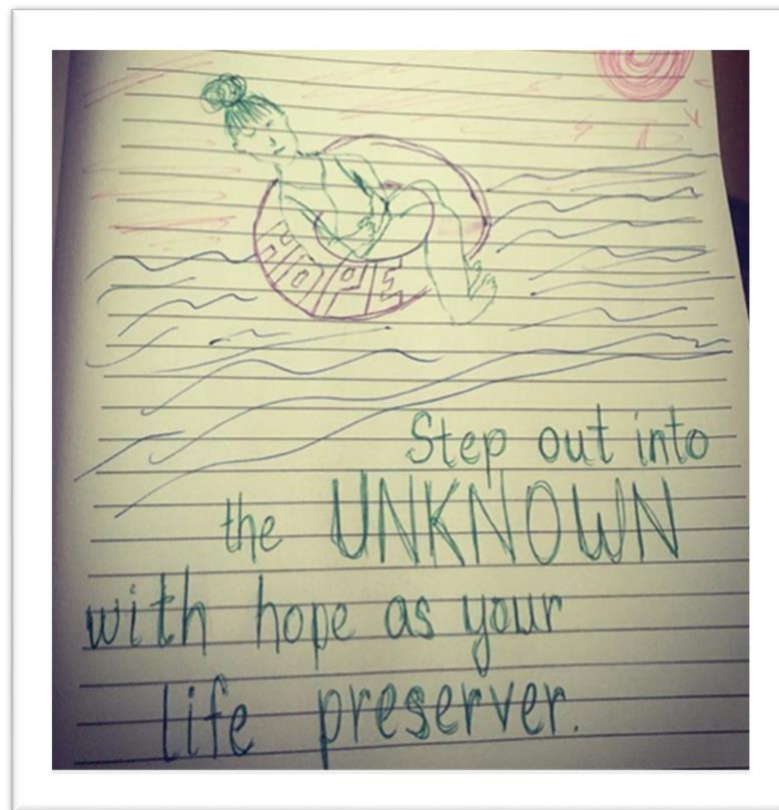 HOPE
Step out into
the UNKNOWN
with hope as your
life preserver.